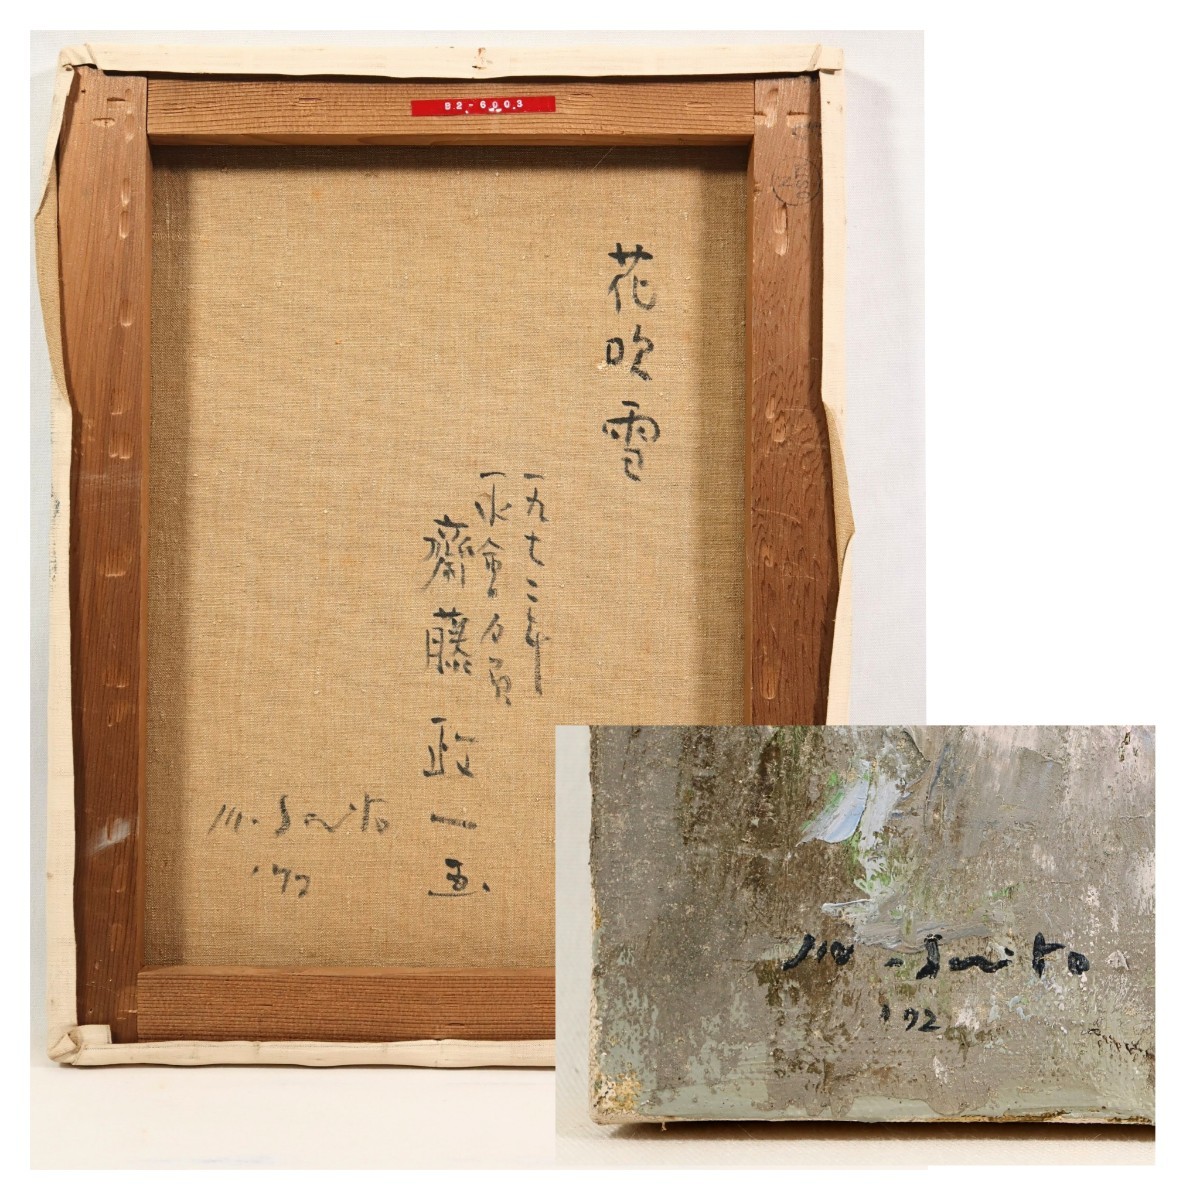 B2-6003
花吹雪
一九七二年
一水會会員
齋藤政一画
M. Saito
'72
M. Saito
'72